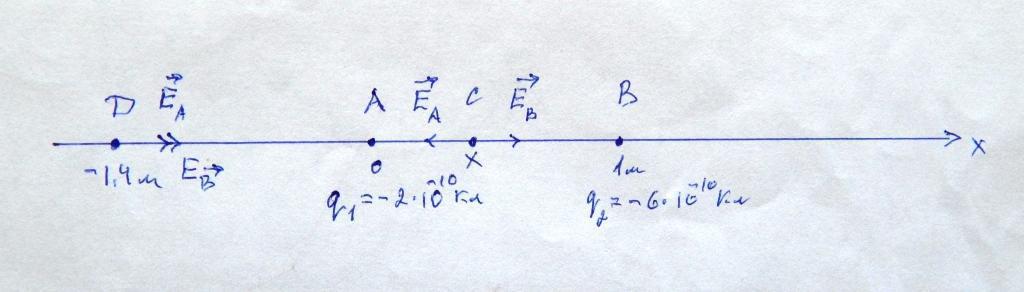 D E_A A E_A C E_B B
-1,4м E_B 0 x 1м x
q₁=-2·10⁻¹⁰Кл q₂=-6·10⁻¹⁰Кл